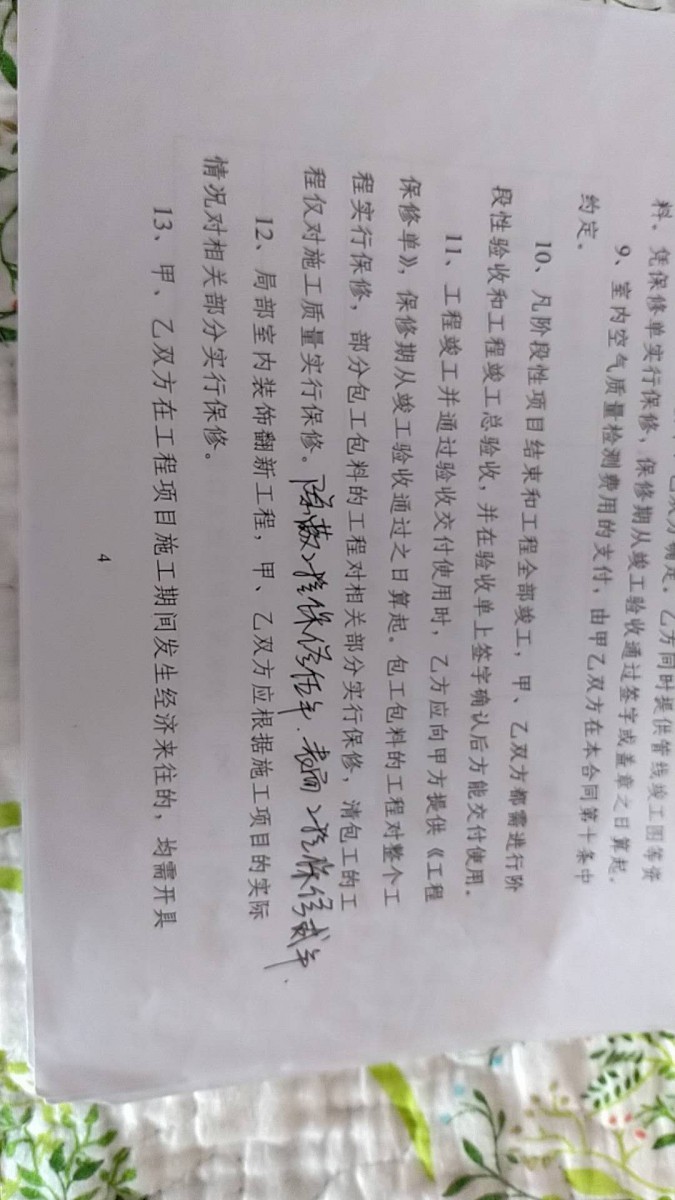 乙方同时提供管线竣工图等资
料。凭保修单实行保修，保修期从竣工验收通过签字或盖章之日算起。
9、室内空气质量检测费用的支付，由甲乙双方在本合同第十条中
约定。
10、凡阶段性项目结束和工程全部竣工，甲、乙双方都需进行阶
段性验收和工程竣工总验收，并在验收单上签字确认后方能交付使用。
11、工程竣工并通过验收交付使用时，乙方应向甲方提供《工程
保修单》，保修期从竣工验收通过之日算起。包工包料的工程对整个工
程实行保修，部分包工包料的工程对相关部分实行保修，清包工的工
程仅对施工质量实行保修。隐蔽工程保修伍年.表面工程保修贰年.
12、局部室内装饰翻新工程，甲、乙双方应根据施工项目的实际
情况对相关部分实行保修。
13、甲、乙双方在工程项目施工期间发生经济来往的，均需开具
4